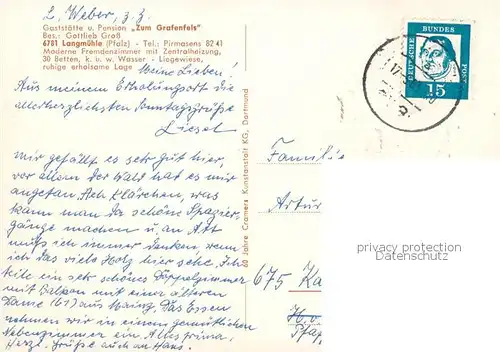 L. Weber, z. Z.
Gaststätte u. Pension „Zum Grafenfels"
Bes.: Gottlieb Groß
6781 Langmühle (Pfalz) - Tel.: Pirmasens 82 41
Moderne Fremdenzimmer mit Zentralheizung,
30 Betten, k. u. w. Wasser - Liegewiese,
ruhige erholsame Lage
Meine Lieben!
Aus meinem Erholungsort die
allerherzlichsten Sonntagsgrüße
Liesel
Mir gefällt es sehr gut hier,
vor allem der Wald hat es mir
angetan. Ach Klärchen, was
kann man da schöne Spazier-
gänge machen u. an
muß ich immer denken, wenn
ich das viele Holz hier sehe. Ich
teile ein sehr schönes Doppelzimmer
mit Balkon mit einer älteren
Dame (61) aus Mainz. Das Essen
nehmen wir in einem gemütlichen
Nebenzimmer ein. Alles prima.
Herzl. Grüße auch an Hans.
60 Jahre Cramers Kunstanstalt KG, Dortmund
DEUTSCHE BUNDESPOST
15
Familie
Artur
675 Ka
privacy protection
Ansichtskarten-Center.de